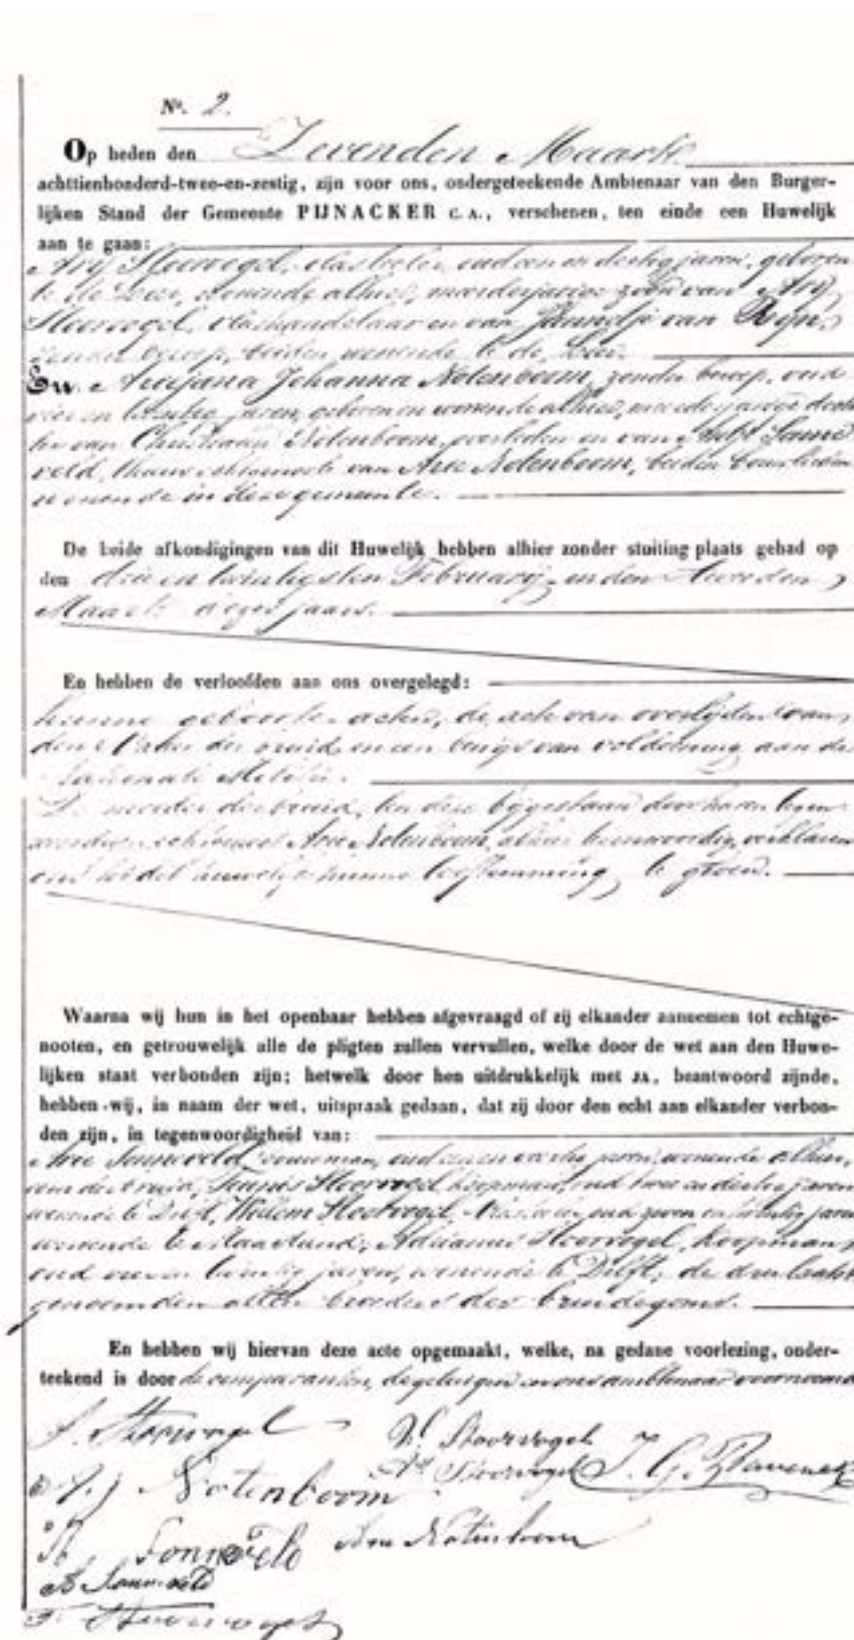 No. 2.
Op heden den Zevenden Maart
achttienhonderd-twee-en-zestig, zijn voor ons, ondergeteekende Ambtenaar van den Burger-
lijken Stand der Gemeente PIJNACKER C. A., verschenen, ten einde een Huwelijk
aan te gaan:
Arij Stoorvogel, oud een en dertig jaren, geboren
te de Leer, wonende alhier, meerderjarige zoon van Arij
Stoorvogel, vlashandelaar en van Jannetje van Rijn,
zonder beroep, beiden wonende te de Leer.
En Ariejana Johanna Notenboom, zonder beroep, oud
vier en twintig jaren, geboren en wonende alhier, meerderjarige doch
ter van Christiaan Notenboom, overleden en van Sonne
veld, thans echtgenoote van Arie Notenboom, beiden bouwlieden
wonende in deze gemeente.
De beide afkondigingen van dit Huwelijk hebben alhier zonder stuiting plaats gehad op
den drie en twintigsten Februarij en den tweeden
Maart dezes jaars.
En hebben de verloofden aan ons overgelegd:
hunne geboorte akten, de acte van overlijden van
den Vader der bruid, en een bewijs van voldoening aan de
Nationale Militie.
De moeder der bruid, ten deze bijgestaan door haren tegen
woordigen echtgenoot Arie Notenboom, alhier tegenwoordig, verklaren
tot dit huwelijk hunne toestemming te geven.
Waarna wij hun in het openbaar hebben afgevraagd of zij elkander aannemen tot echtge-
nooten, en getrouwelijk alle de pligten zullen vervullen, welke door de wet aan den Huwe-
lijken staat verbonden zijn; hetwelk door hen uitdrukkelijk met JA, beantwoord zijnde,
hebben wij, in naam der wet, uitspraak gedaan, dat zij door den echt aan elkander verbon-
den zijn, in tegenwoordigheid van:
Arie Sonneveld bouwman, oud jaren, wonende alhier,
der bruid, Stoorvogel, koopman, oud twee en dertig jaren
wonende te Delft, Willem Stoorvogel, oud zeven en twintig jaren
wonende te Maasland, Adrianus Stoorvogel, koopman,
oud vier en twintig jaren, wonende te Delft, de drie laatst
genoemden allen broeders des bruidegoms.
En hebben wij hiervan deze acte opgemaakt, welke, na gedane voorlezing, onder-
teekend is door de comparanten, de getuigen en ons ambtenaar voornoemd
A. Stoorvogel W. Stoorvogel
A. Stoorvogel J. G.
A. J. Notenboom
A. Sonneveld Arie Notenboom
A Sonneveld
Stoorvogel